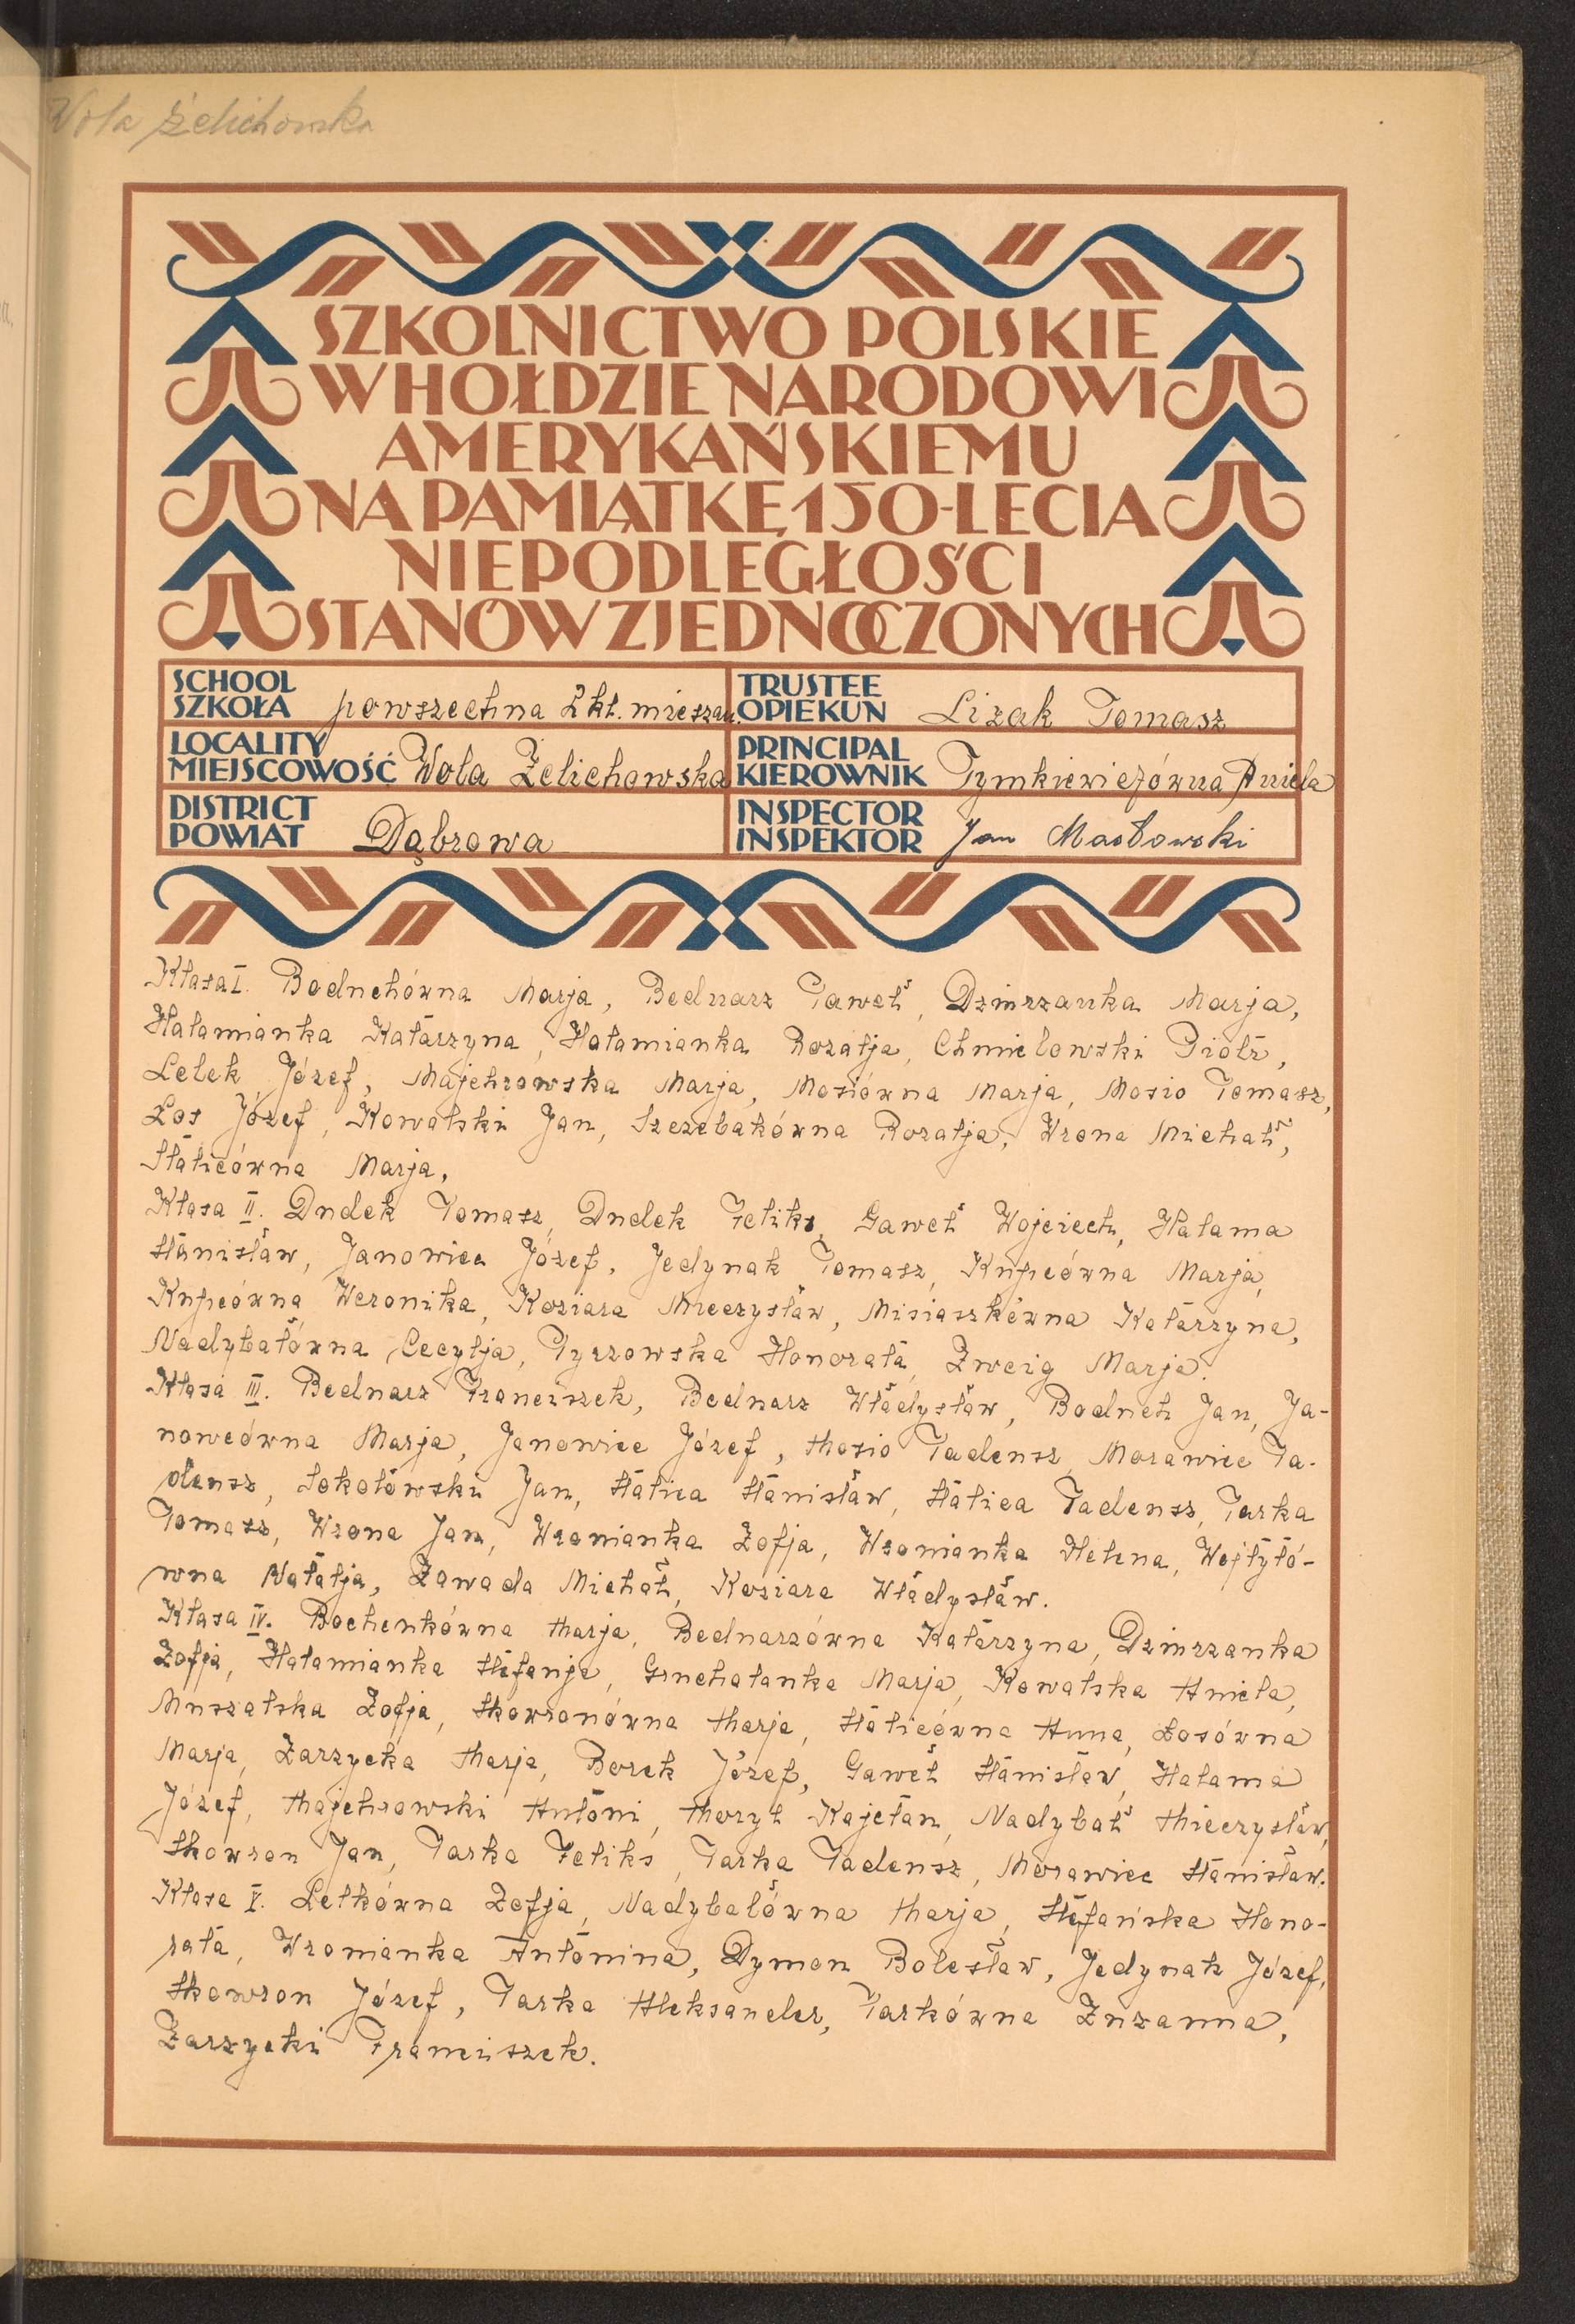 Wola Żelichowska
SZKOLNICTWO POLSKIE
W HOŁDZIE NARODOWI
AMERYKAŃSKIEMU
NA PAMIĄTKĘ 150-LECIA
NIEPODLEGŁOŚCI
STANÓW ZJEDNOCZONYCH
SCHOOL SZKOŁA powszechna 2 kl. mieszan.
TRUSTEE OPIEKUN Lizak Tomasz
LOCALITY MIEJSCOWOŚĆ Wola Żelichowska
PRINCIPAL KIEROWNIK Tymkiewiczówna Aniela
DISTRICT POWIAT Dąbrowa
INSPECTOR INSPEKTOR Jan Masłowski
Klasa I. Boduchówna Marja, Bednarz Paweł, Dziurzanka Marja,
Hałamianka Katarzyna, Hałamianka Rozalja, Chmielowski Piotr,
Lelek Józef, Majchrowska Marja, Mosiówna Marja, Mosio Tomasz,
Łos Józef, Kowalski Jan, Szczebakówna Rozalja, Wrona Michał,
Stalicówna Marja,
Klasa II. Dudek Tomasz, Dudek Feliks, Gaweł Wojciech, Hałama
Stanisław, Janowiec Józef, Jedynak Tomasz, Kupcówna Marja,
Kupcówna Weronika, Koziara Mieczysław, Misiaszkówna Katarzyna,
Nadybałówna Cecylja, Pyrzowska Honorata, Zweig Marja.
Klasa III. Bednarz Franciszek, Bednarz Władysław, Boduch Jan, Ja-
nowcówna Marja, Janowiec Józef, Mosio Tadeusz, Morawiec Ta-
deusz, Sokołowski Jan, Stalica Stanisław, Stalica Tadeusz, Tarka
Tomasz, Wrona Jan, Wronianka Zofja, Wronianka Helena, Wojtyłó-
wna Natalja, Zawada Michał, Koziara Władysław.
Klasa IV. Bochenkówna Marja, Bednarzówna Katarzyna, Dziurzanka
Zofja, Hałamianka Stefanja, Gruchalanka Marja, Kowalska Aniela,
Muszalska Zofja, Skowronówna Marja, Stalicówna Anna, Łosówna
Marja, Zarzycka Marja, Borek Józef, Gaweł Stanisław, Hałama
Józef, Majchrowski Antoni, Moryl Kajetan, Nadybał Mieczysław,
Skowron Jan, Tarka Feliks, Tarka Tadeusz, Morawiec Stanisław.
Klasa V. Lelkówna Zofja, Nadybałówna Marja, Stefańska Hono-
rata, Wronianka Antonina, Dymon Bolesław, Jedynak Józef,
Skowron Józef, Tarka Aleksander, Tarkówna Zuzanna,
Zarzycki Franciszek.